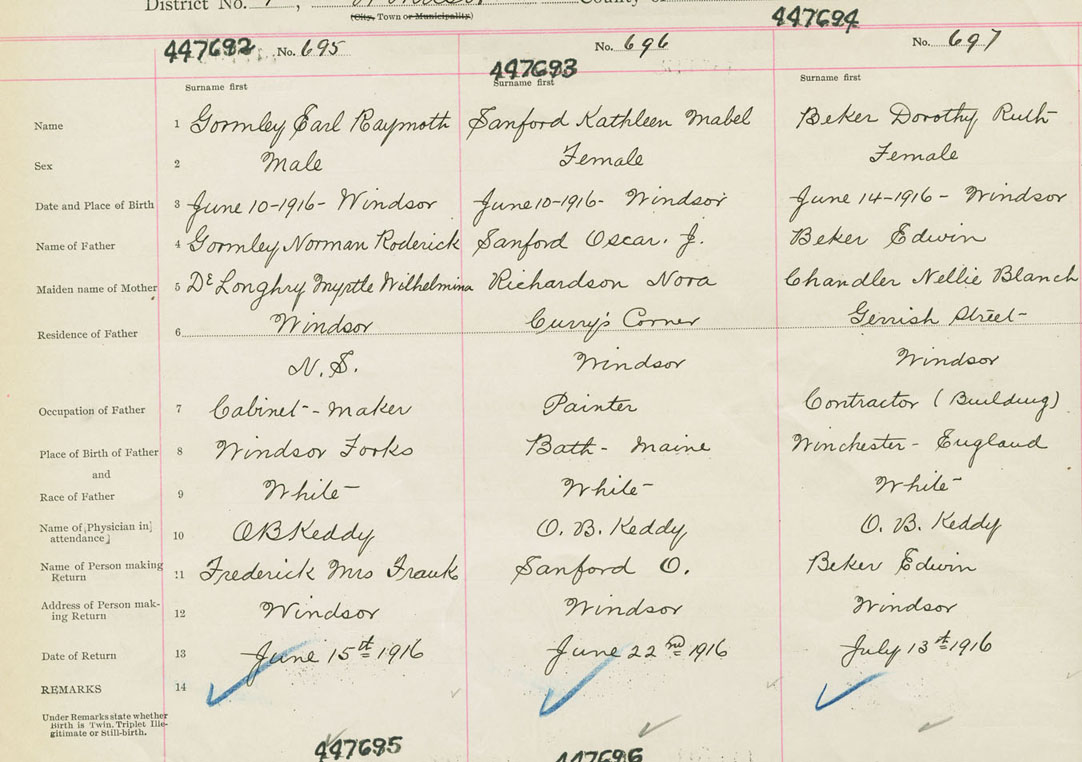 District No.
(City, Town or Municipality)
447692 No. 695
447693 No. 696
447694 No. 697
Surname first Surname first Surname first
Name 1 Gormley Earl Raymoth Sanford Kathleen Mabel Beker Dorothy Ruth
Sex 2 Male Female Female
Date and Place of Birth 3 June 10-1916- Windsor June 10-1916- Windsor June 14-1916- Windsor
Name of Father 4 Gormley Norman Roderick Sanford Oscar. J. Beker Edwin
Maiden name of Mother 5 De Longhry Myrtle Wilhelmina Richardson Nora Chandler Nellie Blanch
Residence of Father 6 Windsor Curry's Corner Gerrish Street-
N.S. Windsor Windsor
Occupation of Father 7 Cabinet-maker Painter Contractor (Building)
Place of Birth of Father 8 Windsor Forks Bath- Maine Winchester- England
and
Race of Father 9 White- White- White-
Name of [Physician in 10 OB Keddy O. B. Keddy O. B. Keddy
attendance]
Name of Person making 11 Frederick Mrs Frank Sanford O. Beker Edwin
Return
Address of Person mak- 12 Windsor Windsor Windsor
ing Return
Date of Return 13 June 15th 1916 June 22nd 1916 July 13th 1916
REMARKS 14
Under Remarks state whether
Birth is Twin, Triplet Ille-
gitimate or Still-birth.
447695 447696